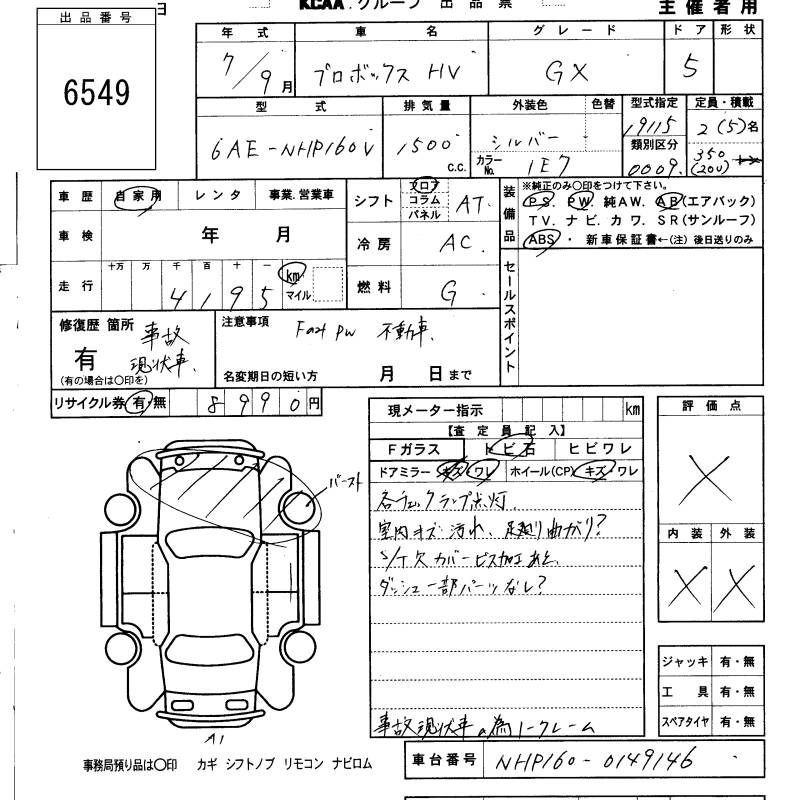 出品番号
KCAA.グループ 出品票
主催者用
6549
年式 車名 グレード ドア 形状
7/9月 プロボックス HV GX 5
型式 排気量 外装色 色替 型式指定 定員・積載
6AE-NHP160V 1500 c.c. シルバー 19115 2(5)名
カラーNo. 1E7 類別区分 0009 350(200)
車歴 自家用 レンタ 事業.営業車
シフト フロア コラム パネル AT
装備品 ※純正のみ〇印をつけて下さい。
PS. PW. 純AW. AB(エアバック)
TV. ナビ. カワ. SR(サンルーフ)
ABS・ 新車保証書←(注) 後日送りのみ
車検 年 月
冷房 AC
走行 十万 万 千 百 十 一 km マイル
4195
燃料 G
セールスポイント
修復歴 箇所 事故現状車
有
(有の場合は〇印を)
注意事項 不動車
名変期日の短い方 月 日まで
リサイクル券 有・無 8990円
現メーター指示 km
【査定員記入】
Fガラス トビ石 ヒビワレ
ドアミラー キズ・ワレ ホイール(CP) キズ・ワレ
各チェックランプ点灯
室内キズ 汚れ、足廻り曲がり?
S/T欠 カバービス加工あと、
ダッシュ一部パーツなし?
事故現状車の為ノークレーム
評価点
内装 外装
バースト
A1
ジャッキ 有・無
工具 有・無
スペアタイヤ 有・無
事務局預り品は〇印 カギ シフトノブ リモコン ナビロム
車台番号 NHP160-0149146